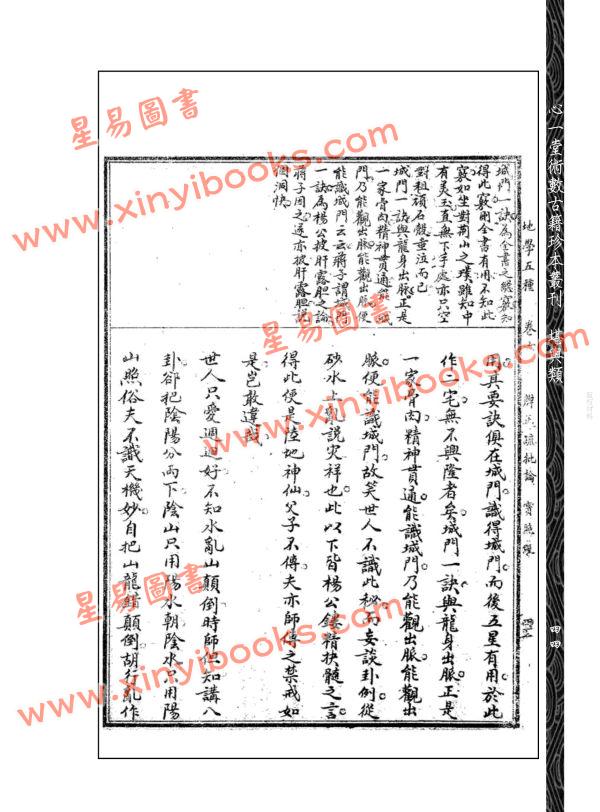 心一堂術數古籍珍本叢刊 堪輿類
四四
地學五種 卷
辨正疏批論 寶照經
城門一訣為全書之竅竅知
得此竅則全書有用不知此
竅如坐對荊山之璞雖知中
有美玉直無下手處亦只空
對粗頑石殼童泣而已
城門一訣與龍身出脈正是
一家骨肉精神貫通能識
門乃能觀出脈能觀出脈便
能識城門云云蔣子謂
一訣為楊公披肝露胆之論
蔣子因之遂亦披肝露胆說
個洞快
用其要訣俱在城門識得城門而後五星有用於此
作二宅無不興隆者矣城門一訣與龍身出脈正是
一家骨肉精神貫通能識城門乃能觀出脈能觀出
脈便能識城門故笑世人不識此秘而妄談卦例從
砂水上亂說災祥也此以下皆楊公鏤精抉髓之言
得此便是陸地神仙父子不傳夫亦師傳之禁戒如
是豈敢違哉
世人只愛週迴好不知水亂山顛倒時師但知講八
卦卻把陰陽分兩下陰山只用陽水朝陰水只用陽
山照俗夫不識天機妙自把山龍錯顛倒胡行亂作
星易圖書
www.xinyibooks.com
星易圖書
www.xinyibooks.com
星易圖書
www.xinyibooks.com